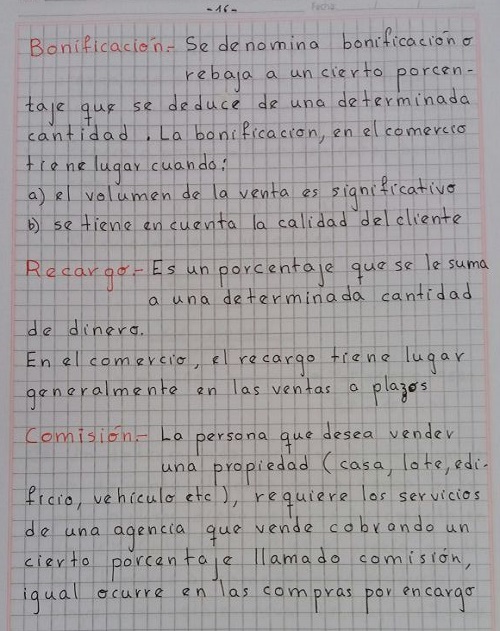 -16-
Fecha
Bonificación.- Se denomina bonificación o
rebaja a un cierto porcen-
taje que se deduce de una determinada
cantidad. La bonificacion, en el comercio
tiene lugar cuando:
a) el volumen de la venta es significativo
b) se tiene en cuenta la calidad del cliente
Recargo.- Es un porcentaje que se le suma
a una determinada cantidad
de dinero.
En el comercio, el recargo tiene lugar
generalmente en las ventas a plazos
Comisión.- La persona que desea vender
una propiedad (casa, lote, edi-
ficio, vehículo etc), requiere los servicios
de una agencia que vende cobrando un
cierto porcentaje llamado comisión,
igual ocurre en las compras por encargo